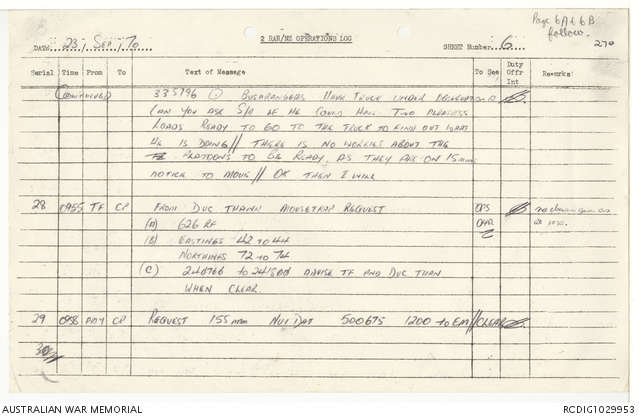 Page 6A & 6B
follow.
270
2 RAR/NZ OPERATIONS LOG
DATE 23 Sep 70
SHEET Number 6
Serial Time From To Text of Message To See Duty Offr Int Remarks
(CONTINUED) 335796 BUSHRANGERS HAVE TRUCK UNDER OBSERVATION
CAN YOU ASK IF HE COULD HAVE TWO
LOADS READY TO GO TO THE TRUCK TO FIND OUT WHAT
HE IS DOING // THERE IS NO WORRIES ABOUT THE
PLATOONS TO BE READY, AS THEY ARE ON 15 mins
NOTICE TO MOVE // OK THEN I WILL
28 0955 TF CP FROM DUC THANH MOUSETRAP REQUEST OPS
(A) 626 RF
(B) EASTINGS 42 TO 44
NORTHINGS 72 TO 74
(C) 240966 TO 241800 ADVISE TF AND DUC THAN
WHEN CLEAR
29 0958 CP REQUEST 155 mm NUI DAT 500675 1200 to EM // CLEAR
30
AUSTRALIAN WAR MEMORIAL
RCDIG1029953